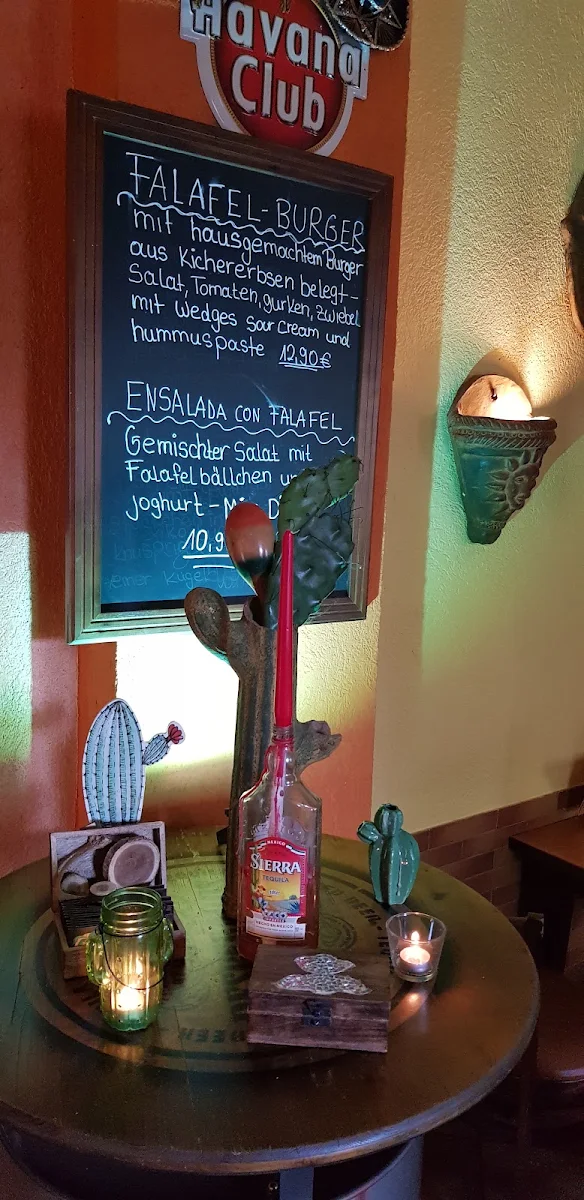 Havana
Club
FALAFEL-BURGER
mit hausgemachtem Burger
aus Kichererbsen belegt-
Salat, Tomaten, gurken, Zwiebel
mit Wedges Sour Cream und
hummuspaste 12,90€
ENSALADA CON FALAFEL
Gemischter Salat mit
Falafelbällchen u
Joghurt-Mi D
10,9
einer Kugel
MEXICO
SIERRA
TEQUILA